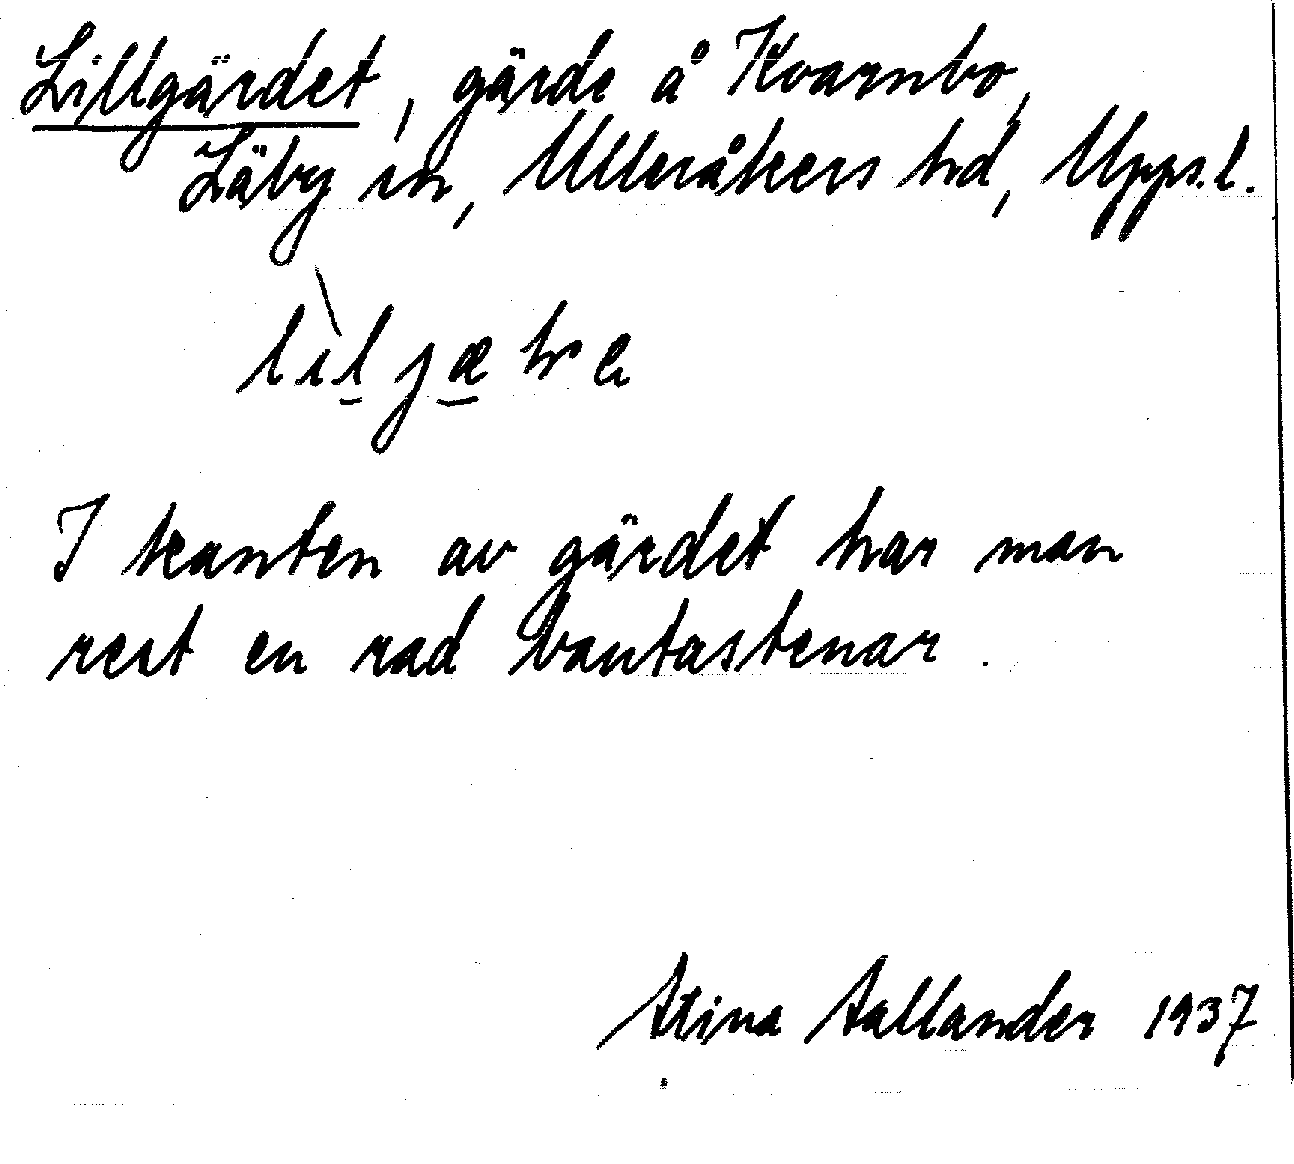 Lillgärdet, gärde å Kvarnbo,
Läby sn, Ulleråkers hd, Upps.l.
I kanten av gärdet har man
rest en rad bautastenar.
Stina Sallander 1937